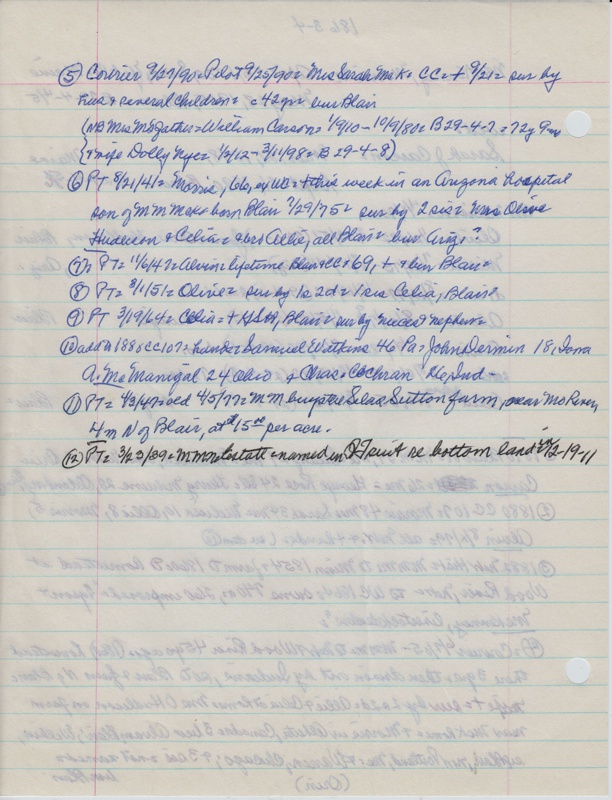 ⑤ Courier 9/27/90 = Pilot 9/25/90 = Mrs Sarah McK = CC = + 9/21 = sur by
hus + several children = = 42 yrs = bur Blair
(NB Mrs = William Carson = 1/9/10 - 10/9/80 = B 29-4-7 = 72y 9m
(+ wife Dolly Nye = 1/2/12 - 3/11/98 = B 29-4-8)
⑥ PT 8/21/41 = Morris, 66, WC = + this week in an Arizona hospital
son of M M born Blair 7/29/75 = sur by 2 sis = Mrs Olive
Huderson + Celia = + bro Allie, all Blair = bur Ariz?
⑦ PT = 11/6/47 = Alvin = lifetime Blair + CC = 69, + + bur Blair =
⑧ PT = 8/1/51 = Olive = sur by 1s 2d = 1 sis Celia, Blair =
⑨ PT 3/19/64 = Celia = + Blair = sur by nieces + nephews =
⑩ add to 1880 CC 107 = Samuel Watkins 46 Pa = John 18, Iona
A. McManigal 24 Ohio + Chas = Cochran Ind -
⑪ PT = 4/3/47 = old 4/5/77 = M M buys the Silas Sutton farm, near
4 m N of Blair, at $15 per acre.
⑫ PT = 3/23/89 = estate = named in suit re bottom land = 2-19-11